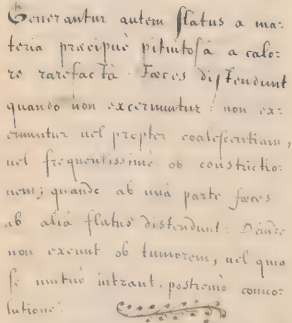 Generantur autem flatus a ma-
teria præcipuè pituitosâ a calo-
re rarefactâ. Fæces distendunt
quando non excernuntur: non ex-
cernuntur vel propter coalescentiam,
vel frequentissimè ob constrictio-
nem; quando ab unâ parte fæces
ab aliâ flatus distendunt: Deinde
non exeunt ob tumorem, vel quia
se mutuò intrant. postremò convo-
lutione.